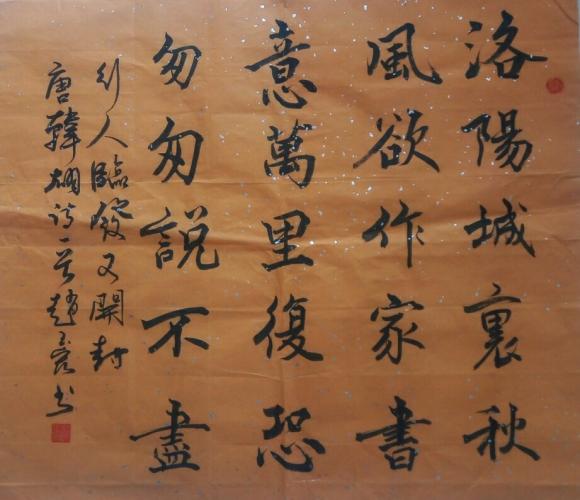 洛陽城裏秋
風欲作家書
意萬里復恐
匆匆說不盡
行人臨發又開封
唐韓詩一首趙書